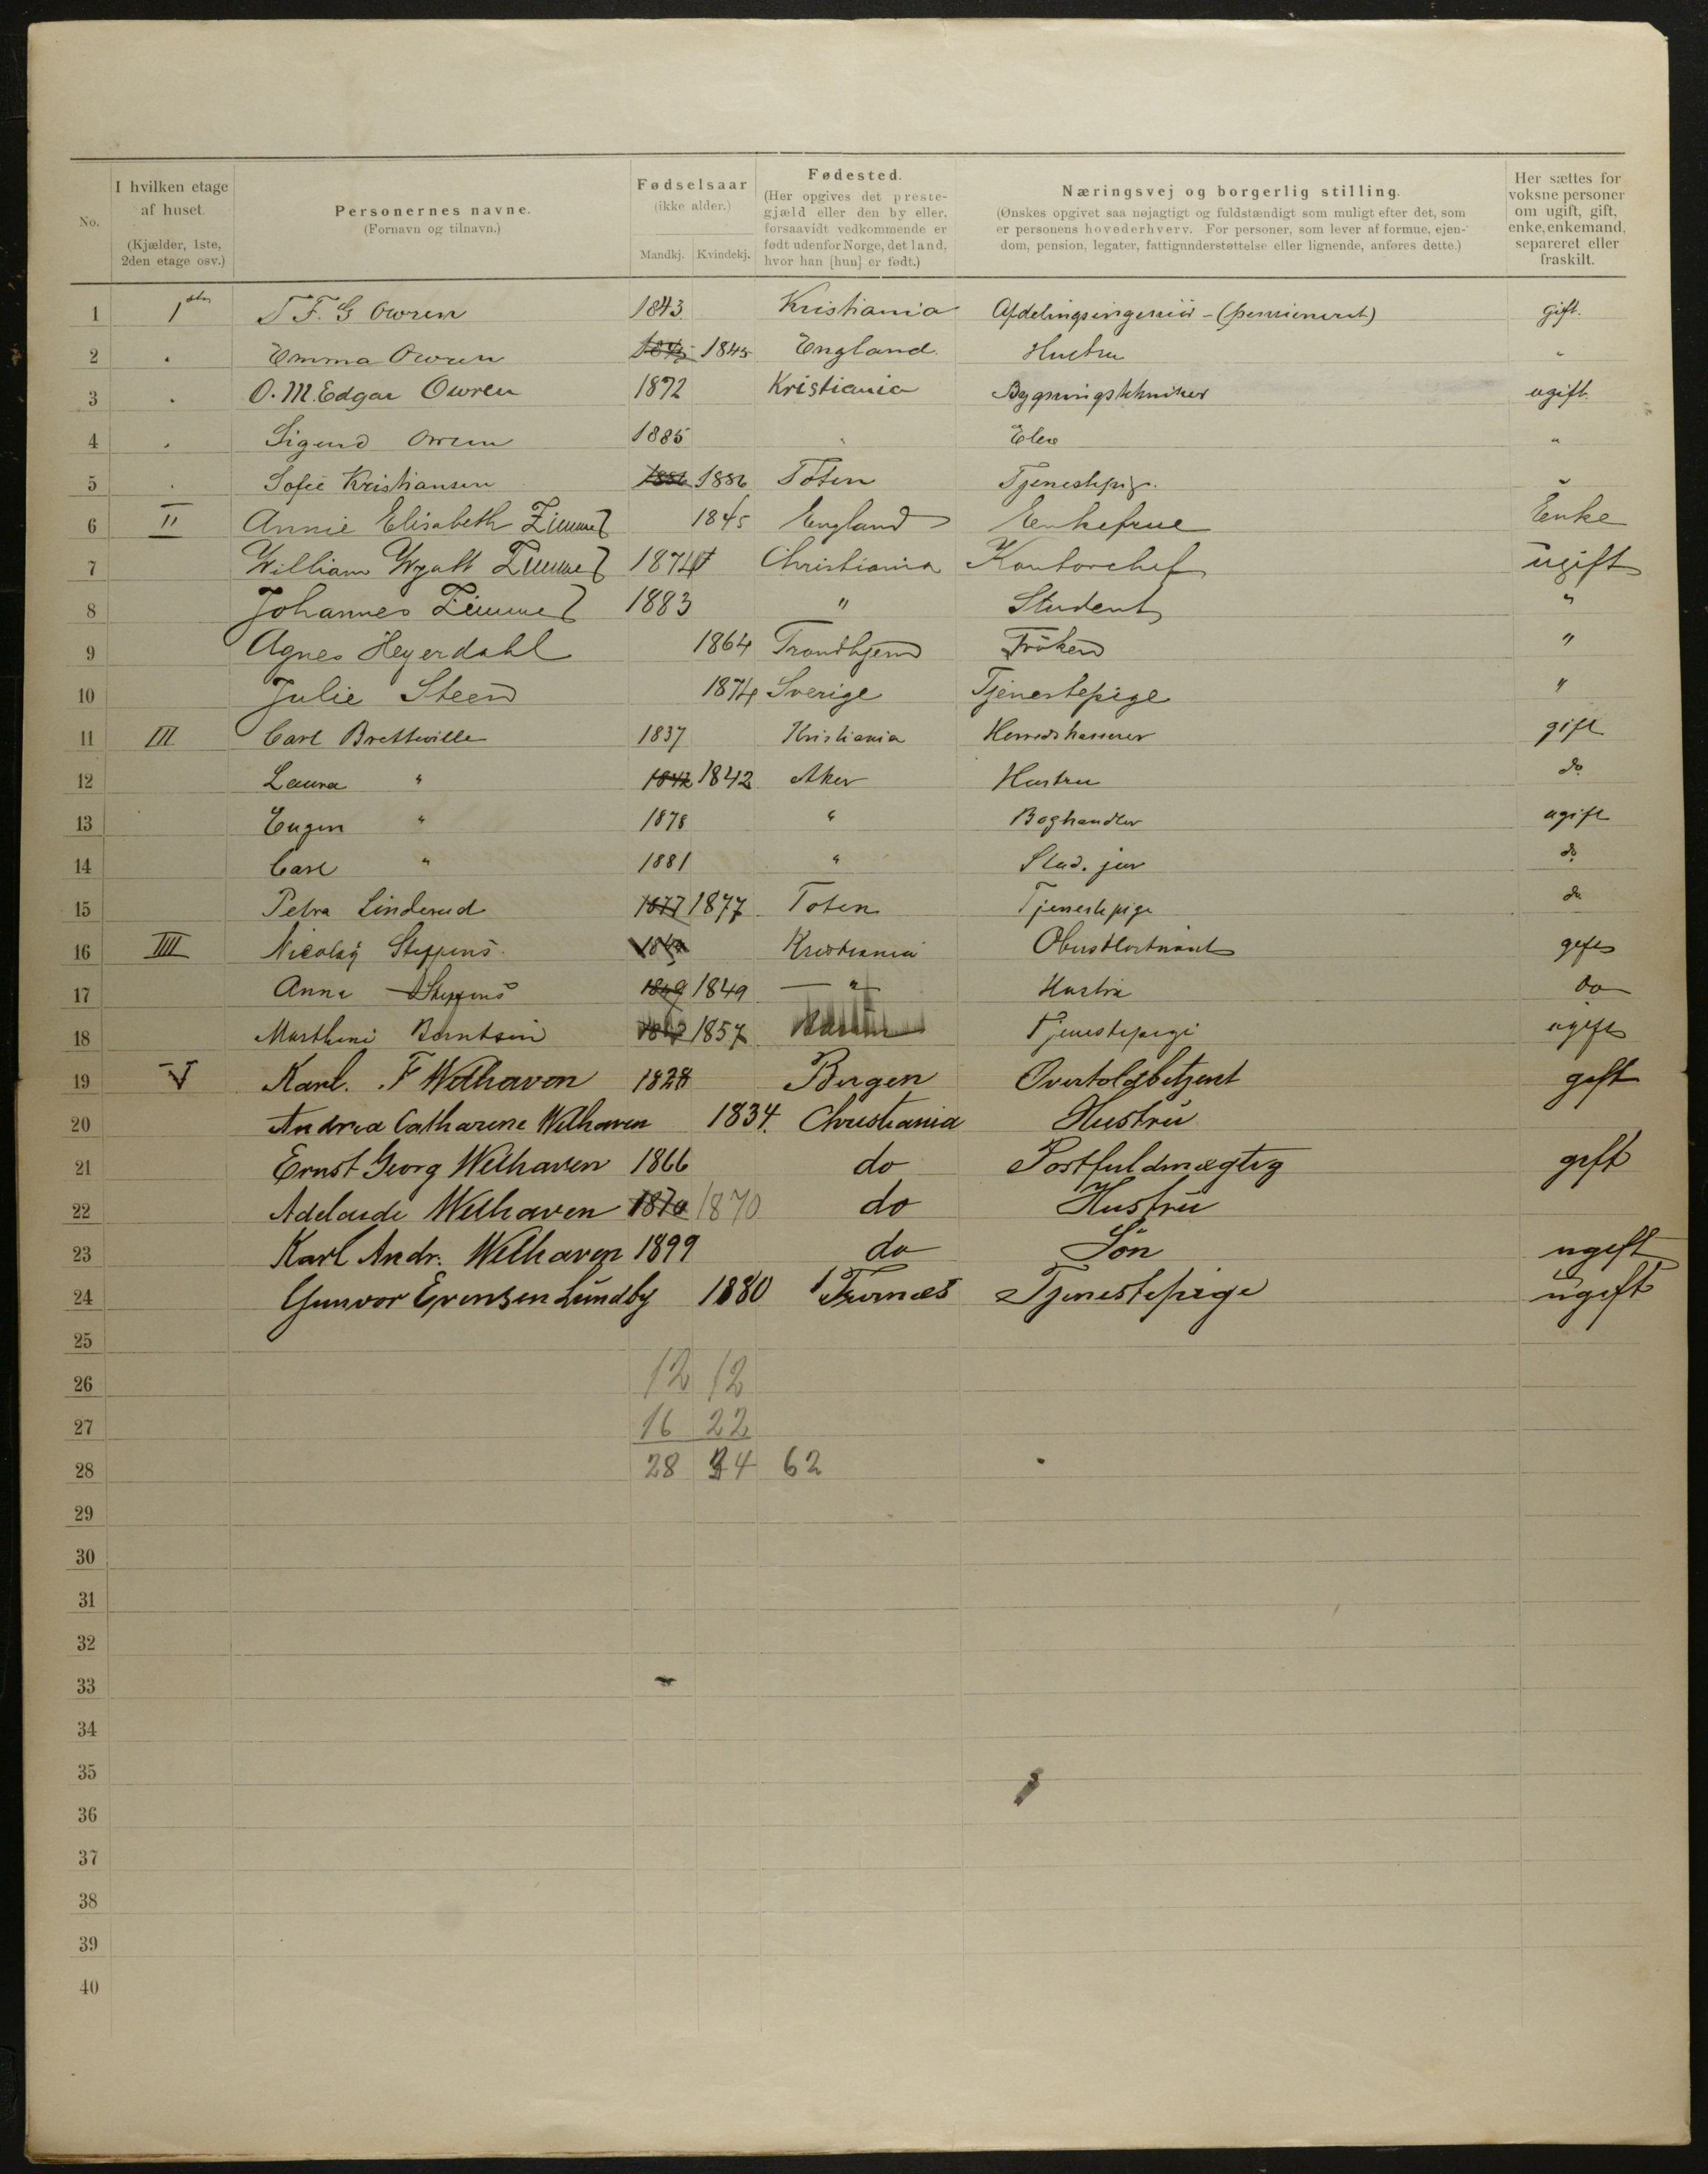 No.
I hvilken etage af huset.
(Kjælder, 1ste, 2den etage osv.)
Personernes navne.
(Fornavn og tilnavn.)
Fødselsaar
(ikke alder.)
Mandkj. Kvindekj.
Fødested.
(Her opgives det prestegjæld eller den by eller, forsaavidt vedkommende er født udenfor Norge, det land, hvor han [hun] er født.)
Næringsvej og borgerlig stilling.
(Ønskes opgivet saa nøjagtigt og fuldstændigt som muligt efter det, som er personens hovederhverv. For personer, som lever af formue, ejendom, pension, legater, fattigunderstøttelse eller lignende, anføres dette.)
Her sættes for voksne personer om ugift, gift, enke, enkemand, separeret eller fraskilt.
1 1ste T F. G Owren 1843 Kristiania Afdelingsingeniör - (pensioneret) gift.
2 " Emma Owren 1845 1845 England Hustru "
3 " O. M. Edgar Owren 1872 Kristiania Bygningstekniker ugift.
4 " Sigurd Owren 1885 " Elev "
5 " Sofie Kristiansen 1886 1886 Toten Tjenestepige. "
6 II Annie Elisabeth Zimmer 1845 England Enkefrue Enke
7 William Wyatt Zimmer 1874 Christiania Kontorchef ugift
8 Johannes Zimmer 1883 " Student "
9 Agnes Heyerdahl 1864 Trondhjem Fröken "
10 Julie Steen 1874 Sverige Tjenestepige "
11 III Carl Bretteville 1837 Kristiania Herredskasserer gift
12 Laura " 1842 1842 Aker Hustru do
13 Eugen " 1878 " Boghandler ugift
14 Carl " 1881 " Stud. jur do
15 Petra Linderud 1877 1877 Toten Tjenestepige do
16 IIII Nicolay Steffens Kristiania Oberstløitnant gift
17 Anna Steffens 1849 1849 — " — Hustru do
18 Marthini Berntsen 1857 Tjenestepige ugift
19 V Karl. F Welhaven 1828 Bergen Overtoldbetjent gift
20 Andrea Catharine Welhaven 1834. Christiania Hustru
21 Ernst Georg Welhaven 1866 do Postfuldmægtig gift
22 Adelaide Welhaven 1870 1870 do Hustru
23 Karl Andr. Welhaven 1899 do Sön ugift
24 Gunvor Evensen Lundby 1880 Furnæs Tjenestepige ugift
25
26 12 12
27 16 22
28 28 34 62
29
30
31
32
33
34
35
36
37
38
39
40